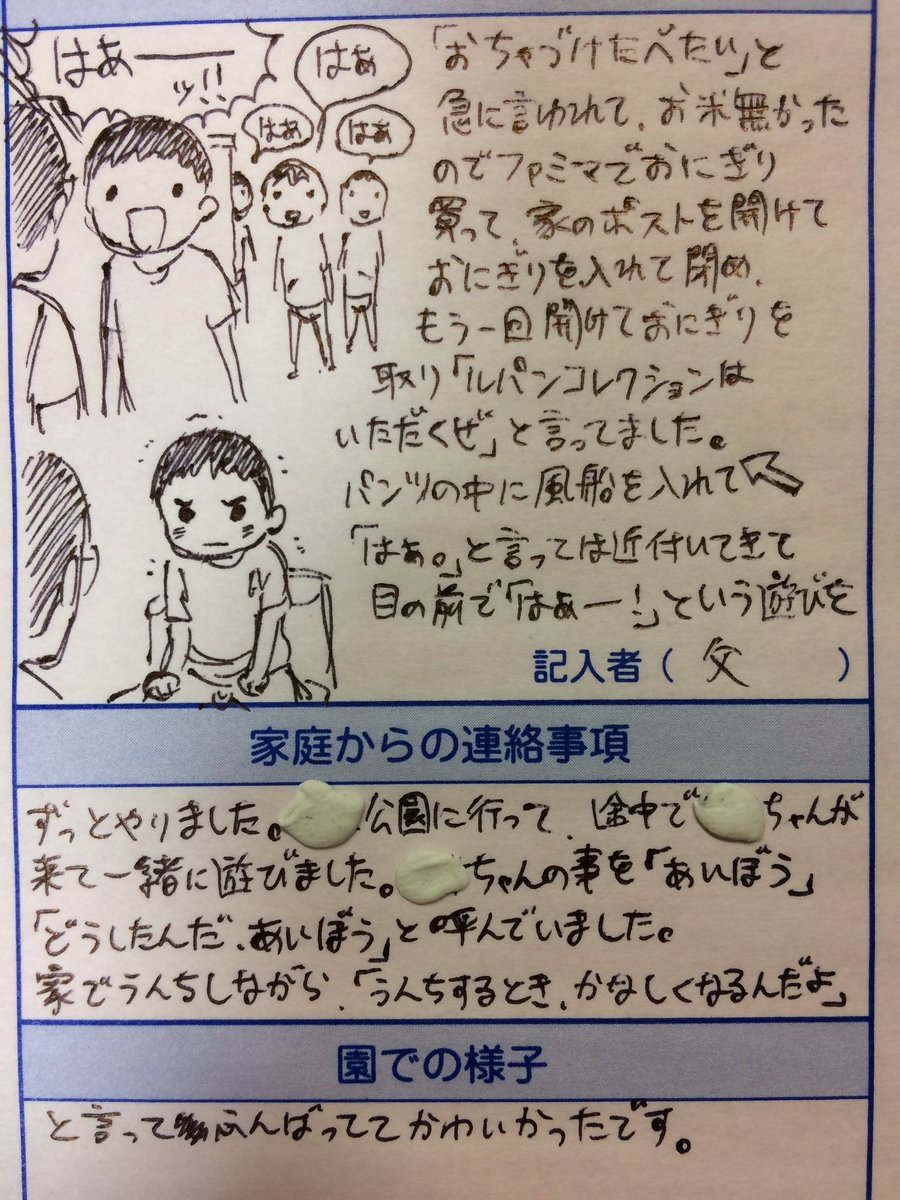 はあーーッ!!
はあ
はあ
はあ
「おちゃづけたべたい」と
急に言われて、お米無かった
のでファミマでおにぎり
買って、家のポストを開けて
おにぎりを入れて閉め、
もう一回開けておにぎりを
取り「ルパンコレクションは
いただくぜ」と言ってました。
パンツの中に風船を入れて
「はぁ。」と言っては近付いてきて
目の前で「はぁー!」という遊びを
記入者(父)
家庭からの連絡事項
ずっとやりました。公園に行って、途中でちゃんが
来て一緒に遊びました。ちゃんの事を「あいぼう」
「どうしたんだ、あいぼう」と呼んでいました。
家でうんちしながら、「うんちするとき、かなしくなるんだよ」
園での様子
と言ってふんばっててかわいかったです。